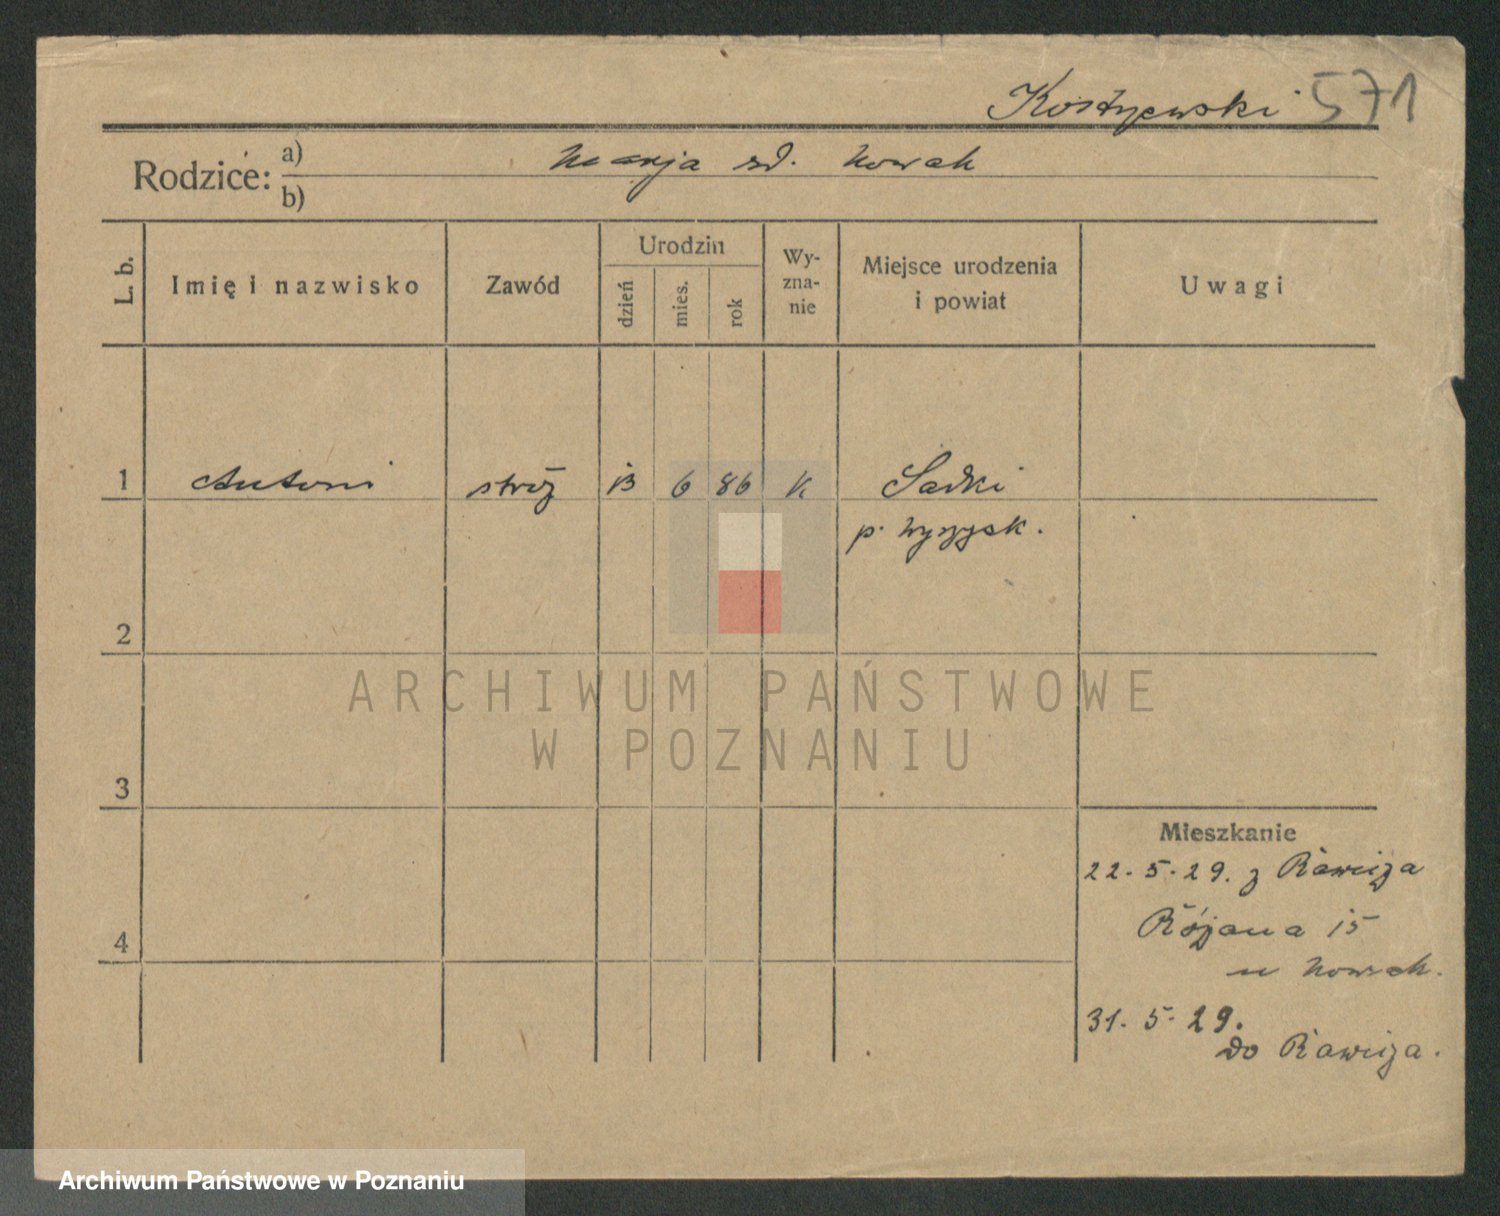 Kostrzewski 571
Rodzice: a) Marja zd. Nowak
b)
L. b. Imię i nazwisko Zawód Urodzin dzień mies. rok Wy-zna-nie Miejsce urodzenia i powiat Uwagi
1 Antoni stróż 13 6 86 K Sadki
p. Wyrzysk.
2
ARCHIWUM PAŃSTWOWE
W POZNANIU
3
Mieszkanie
22. 5. 29. z Rawicza
Różana 15
4
u Nowak.
31. 5. 29.
do Rawicza.
Archiwum Państwowe w Poznaniu